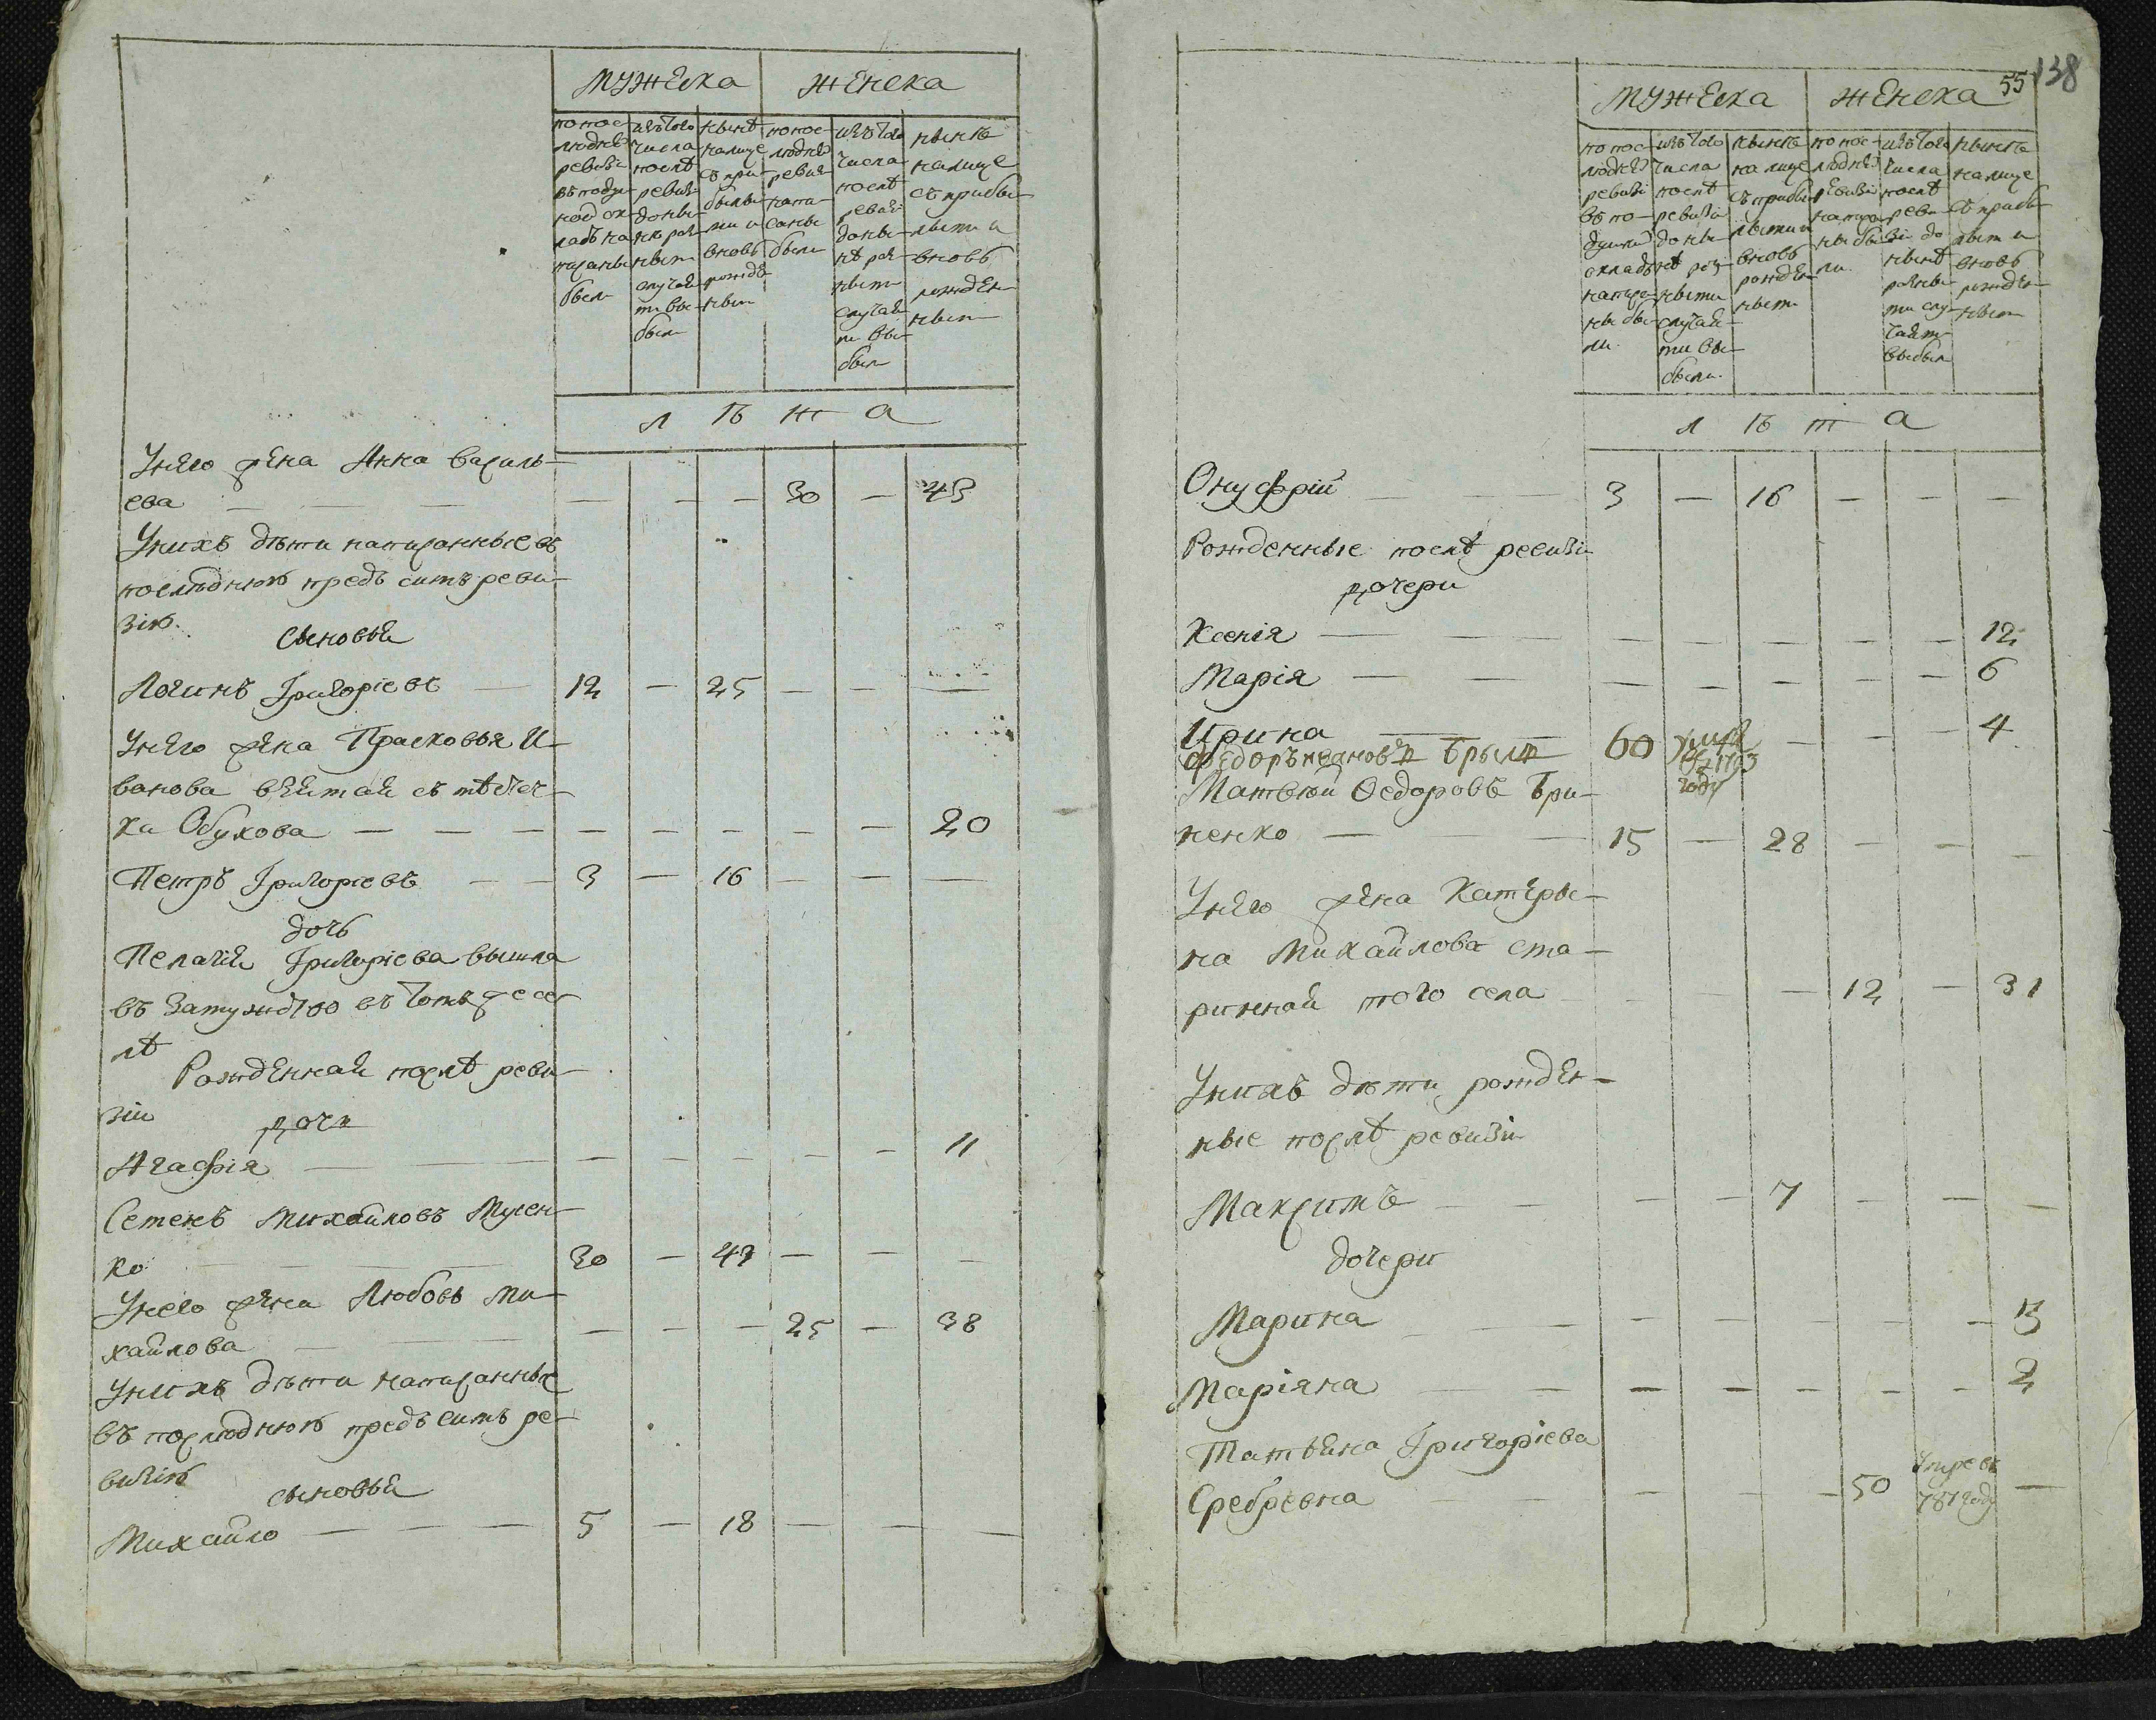 мужеска женска
по пос-
ледней
ревизіи
въ поду-
ной ок-
ладъ на-
писаны
были
изъ того
числа
послѣ
ревизіи
до ны-
нѣ раз-
ными
случая-
ми вы-
были
нынѣ
на лице
съ при-
былы-
ми и
вновь
рожде-
ными
по пос-
ледней
ревизіи
напи-
саны
были
изъ того
числа
послѣ
ревизіи
до ны-
нѣ раз-
ными
случая-
ми вы-
были
нынѣ
на лице
съ прибы-
лыми и
вновь
рожден-
ными
л ѣ т а
У него жена Анна василь-
ева — — — — — — 30 — 43
У нихъ дѣти написанные въ
последнюю предъ симъ реви-
зію
сыновья
Логинъ Григоріевъ — 12 — 25 — — —
У него жена Прасковья И-
ванова взятая съ мѣстеч-
ка Обухова — — — — — — — — 20
Петръ Григоріевъ — — 3 — 16 — — —
дочь
Пелагія Григоріева вышла
въ замужство въ томъ же се-
лѣ
Рожденная послѣ реви-
зіи
дочь
Агафія — — — — — — — 11
Семенъ Михайловъ Мусен-
ко — — — 30 — 43 — — —
У него жена Любовь Ми-
хайлова — — — — — 25 — 38
У нихъ дѣти написанные
въ последнюю предъ симъ ре-
визію
сыновья
Михайло — — — 5 — 18 — — —
55 138
мужеска женска
по пос-
ледней
ревизіи
въ по-
душной
окладъ
написа-
ны бы-
ли
изъ того
числа
послѣ
ревизіи
до ны-
нѣ раз-
ными
случая-
ми вы-
были
нынѣ
на лице
съ прибы-
лыми и
вновь
рожден-
ными
по пос-
ледней
ревизіи
написа-
ны бы-
ли
изъ того
числа
послѣ
реви-
зіи до
нынѣ
разны-
ми слу-
чаями
выбыли
нынѣ
на лице
съ прибы-
лыми и
вновь
рожден-
ными
л ѣ т а
Онуфрій — — 3 — 16 — — —
Рожденные послѣ ревизіи
дочери
Ксенія — — — — — — — 12
Марія — — — — — — — 6
Ирина — — — — 4
Федоръ Ивановъ 60 умре
въ 1793
году
Матвѣй Федоровъ Бри-
ненко — — 15 — 28 — — —
У него жена Катеры-
на Михайлова ста-
ринная того села — — — 12 — 31
У нихъ дѣти рожден-
ные послѣ ревизіи
Максимъ — — — — 7 — — —
дочери
Марина — — — — — — — 13
Маріяна — — — — — — — 2
Татьяна Григоріева
Сребревна — — — — — 50 умре въ
787 году —